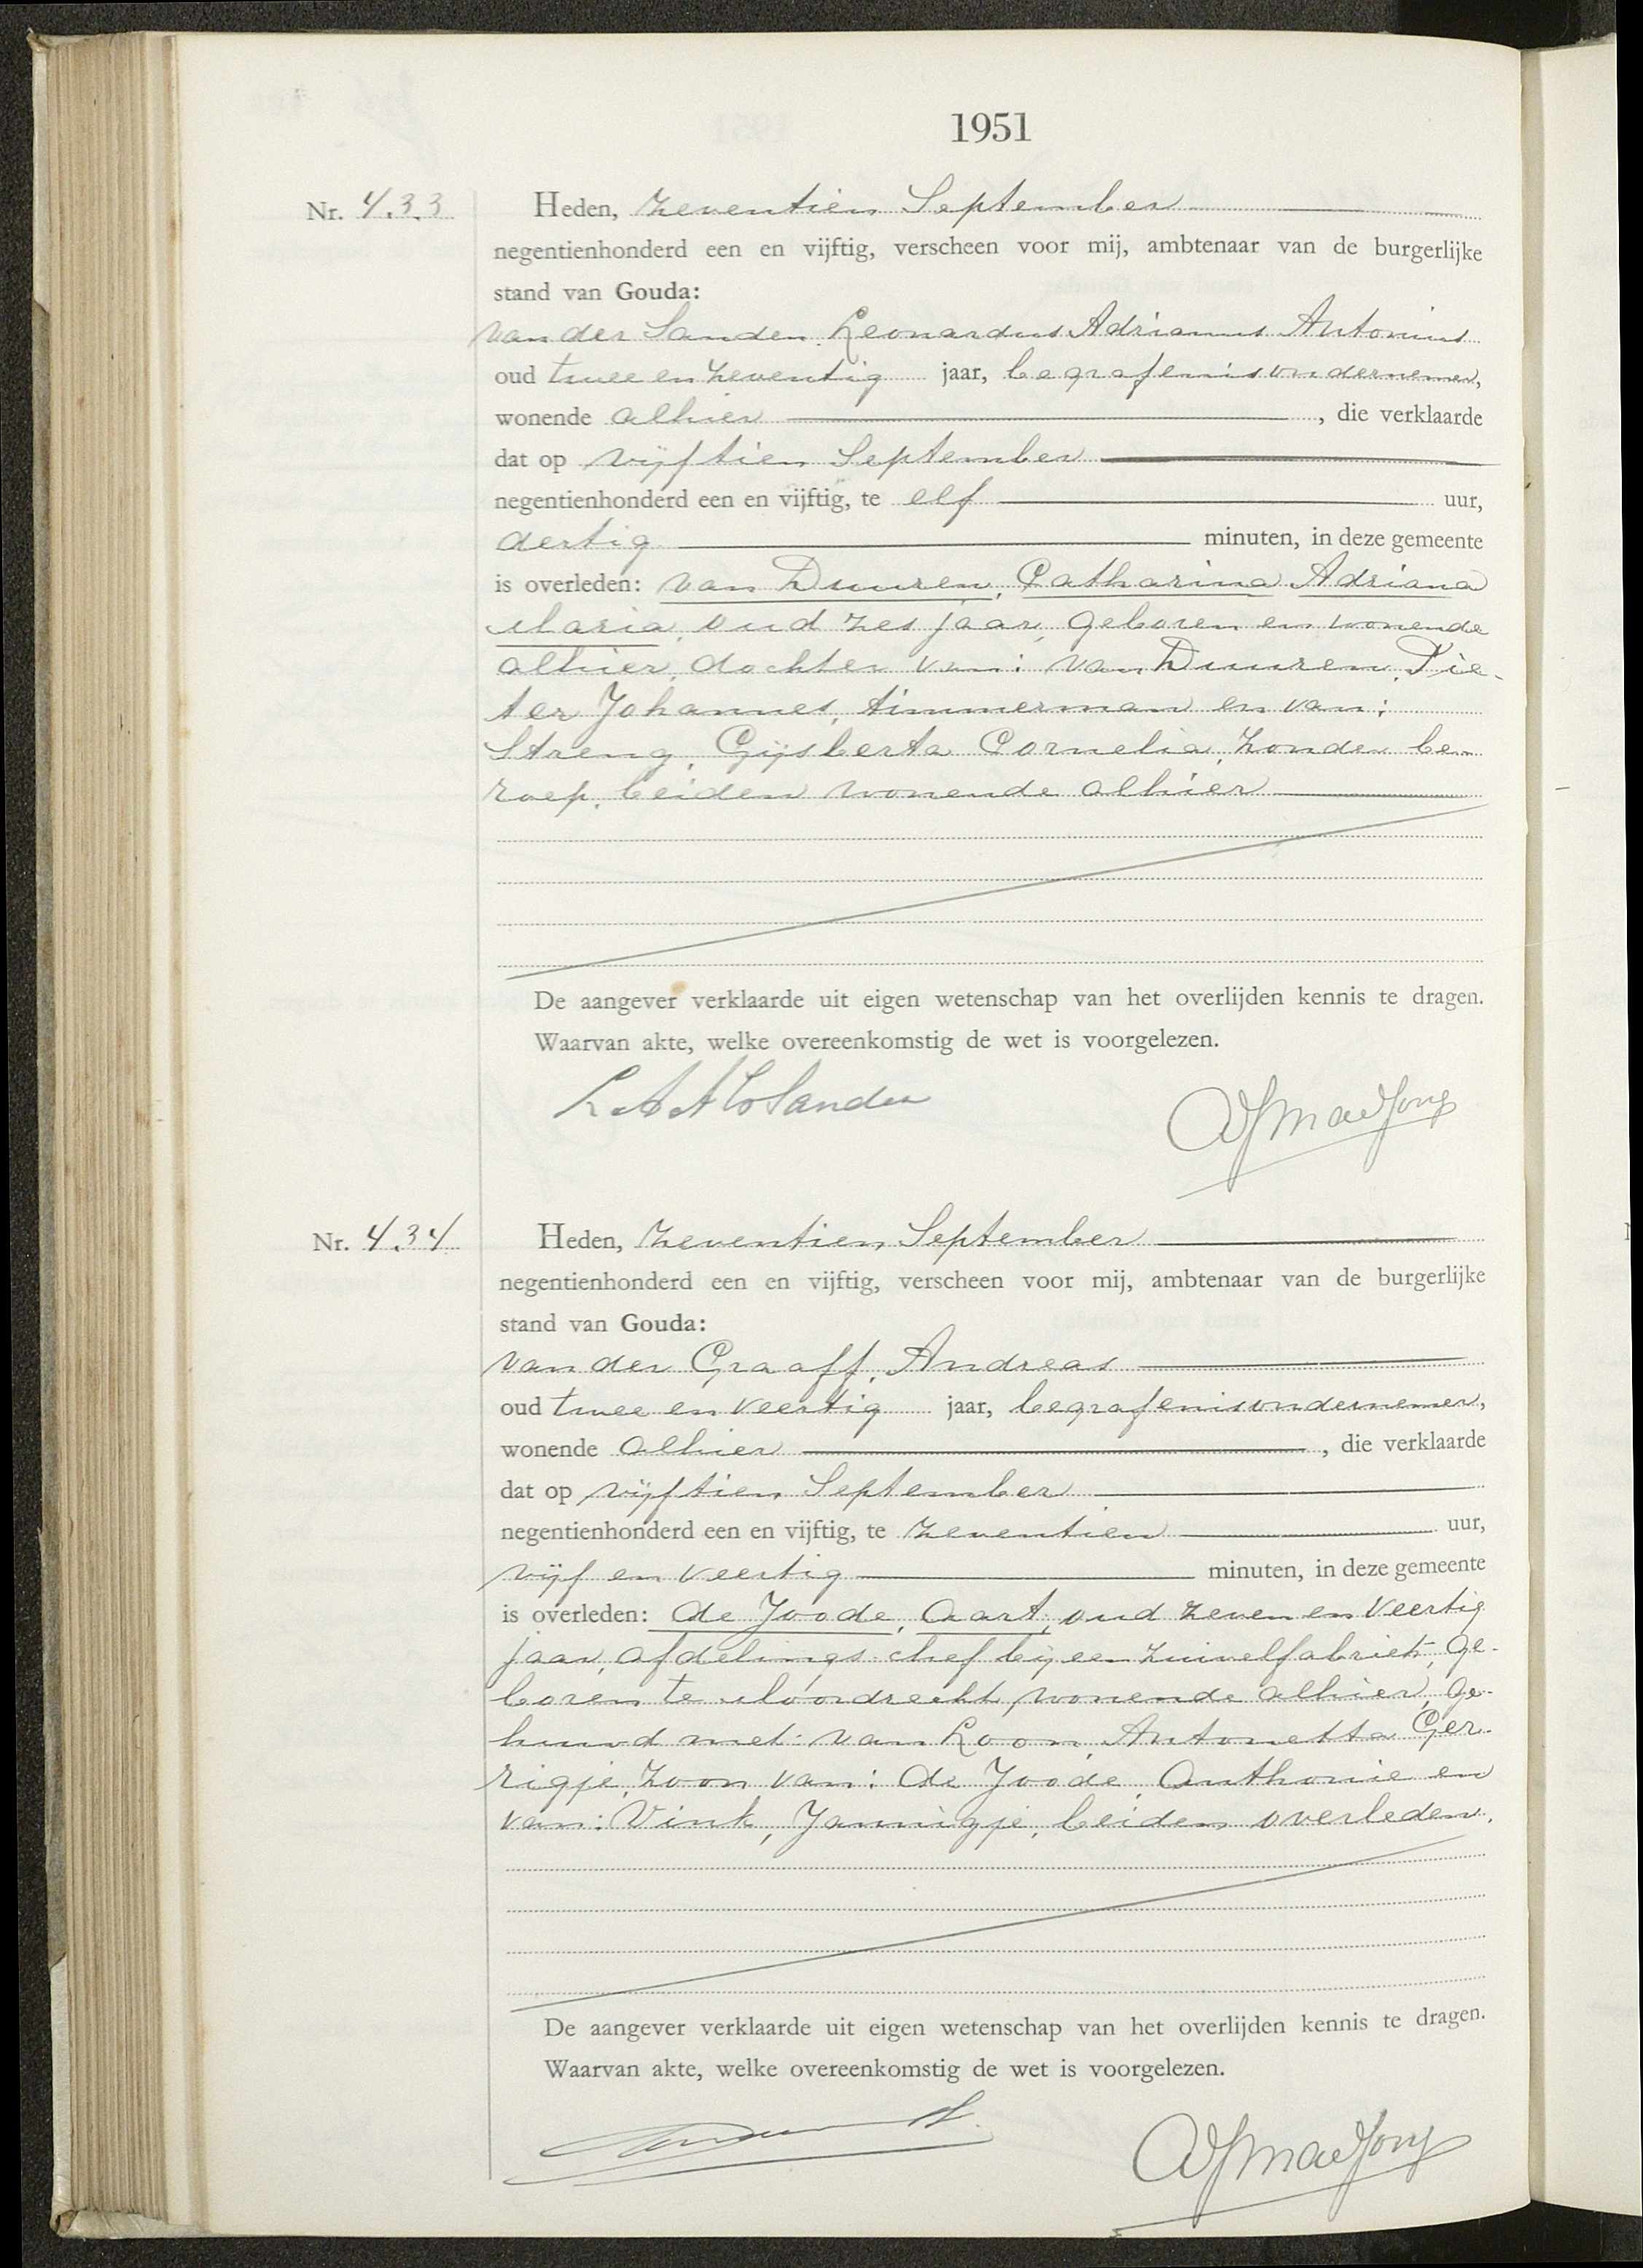 1951
Nr. 433
Heden, zeventien September
negentienhonderd een en vijftig, verscheen voor mij, ambtenaar van de burgerlijke
stand van Gouda:
van der Sanden, Leonardus Adrianus Antonius
oud twee en zeventig jaar, begrafenisondernemer,
wonende alhier , die verklaarde
dat op vijftien September
negentienhonderd een en vijftig, te elf uur,
dertig minuten, in deze gemeente
is overleden: van Duuren, Catharina Adriana
Maria, oud zes jaar, geboren en wonende
alhier, dochter van: van Duuren, Pie-
ter Johannes, timmerman en van:
Streng, Gijsberta Cornelia, zonder be-
roep, beiden wonende alhier
De aangever verklaarde uit eigen wetenschap van het overlijden kennis te dragen.
Waarvan akte, welke overeenkomstig de wet is voorgelezen.
Nr. 434
Heden, zeventien September
negentienhonderd een en vijftig, verscheen voor mij, ambtenaar van de burgerlijke
stand van Gouda:
van der Graaff, Andreas
oud twee en veertig jaar, begrafenisondernemer,
wonende alhier , die verklaarde
dat op vijftien September
negentienhonderd een en vijftig, te zeventien uur,
vijf en veertig minuten, in deze gemeente
is overleden: de Joode, Aart, oud zeven en veertig
jaar, afdelings-chef bij een zuivelfabriek, ge-
boren te Moordrecht, wonende alhier, ge-
huwd met: van Loon, Antonetta Ger-
rigje, zoon van: de Joode, Anthonie en
van: Vink, Jannigje, beiden overleden.
De aangever verklaarde uit eigen wetenschap van het overlijden kennis te dragen.
Waarvan akte, welke overeenkomstig de wet is voorgelezen.